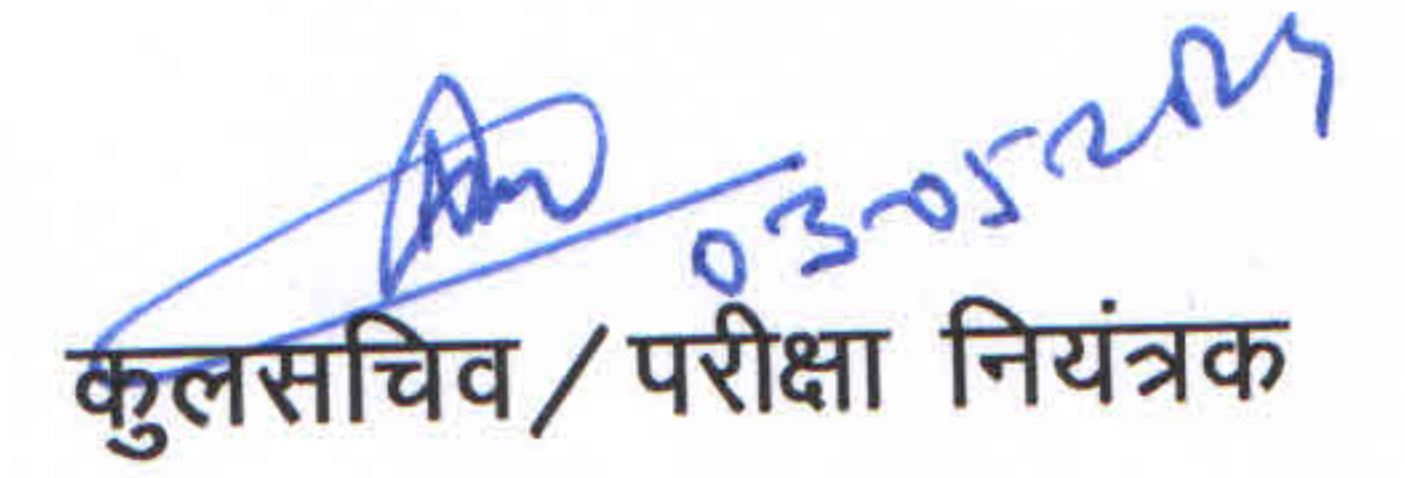 03-05-2024
कुलसचिव/परीक्षा नियंत्रक